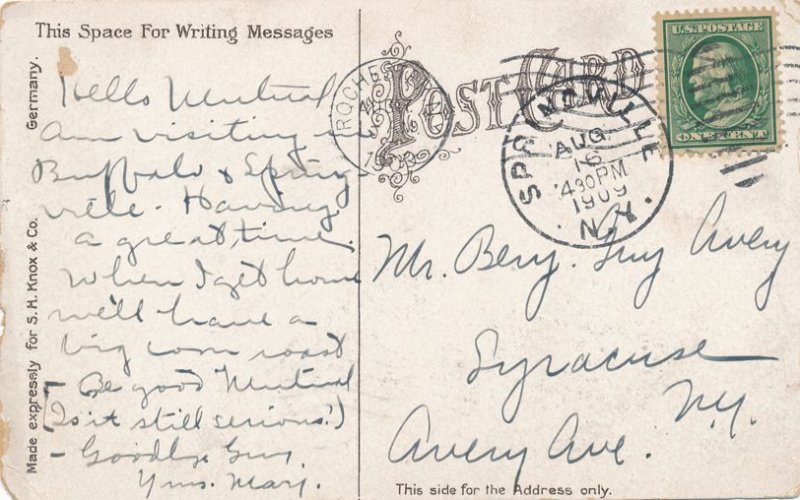 This Space For Writing Messages
Hello Mutual
Am visiting in
Buffalo & Spring-
ville. Having
a great time.
When I get home
we'll have a
big corn roast
- Be good Mutual
(Is it still serious?)
- Goodbye Guy.
Yrs. Mary.
Germany.
Made expressly for S. H. Knox & Co.
POST CARD
ROCHES
SPRINGVILLE
AUG.
16
4 30 PM
1909
N.Y.
U.S. POSTAGE
ONE CENT
Mr. Benj. Guy Avery
Syracuse
N.Y.
Avery Ave.
This side for the Address only.